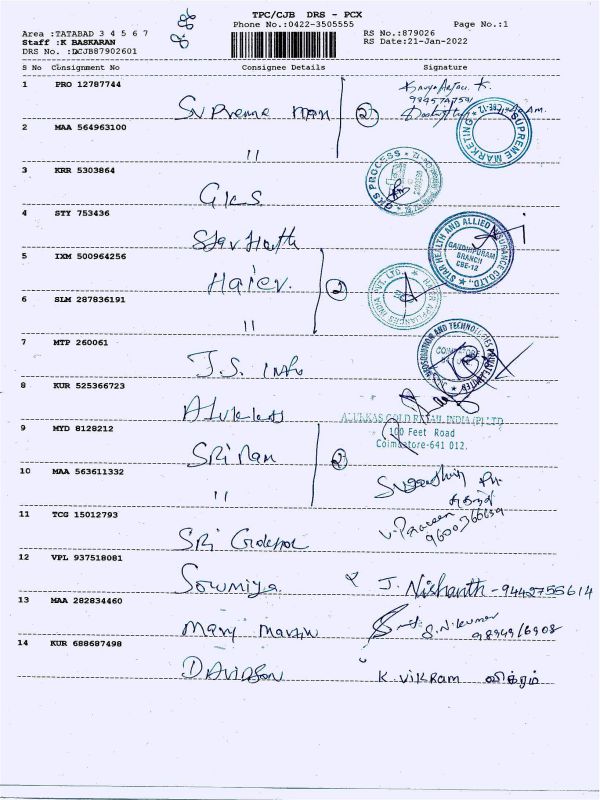 TPC/CJB DRS - PCX
Page No.:1
Phone No.:0422-3505555
Area :TATABAD 3 4 5 6 7
RS No.:879026
Staff :K BASKARAN
RS Date:21-Jan-2022
DRS No. :DCJB87902601
S No Consignment No Consignee Details Signature
1 PRO 12787744
Supreme man 2
2 MAA 564963100
"
SUPREME MARKETING
3 KRR 5303864
GKS
GKS PROCESS
4 STY 753436
Star Health
STAR HEALTH AND ALLIED INSURANCE CO.LTD.,
GANDHIPURAM
BRANCH
CBE-12
5 IXM 500964256
Haier 2
HAIER APPLIANCES INDIA PVT. LTD.
6 SLM 287836191
"
7 MTP 260061
J.S. Info
8 KUR 525366723
Alukkas
ALUKKAS GOLD RETAIL INDIA (P) LTD
100 Feet Road
Coimbatore-641 012.
9 MYD 8128212
SRi Ram 2
10 MAA 563611332
"
11 TCG 15012793
V. Praveen
SRi
12 VPL 937518081
Sowmiya J. Nishanth - 9442755614
13 MAA 282834460
Mary Martin S.N. Kumar
14 KUR 688687498
DAVIDSON K. VIKRAM விக்ரம்